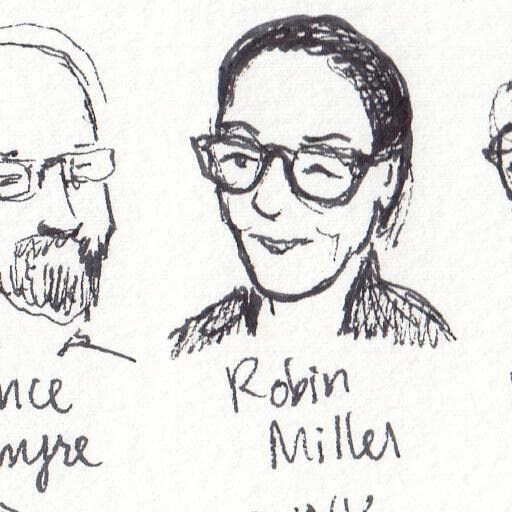 nce
myre
Robin
Miller